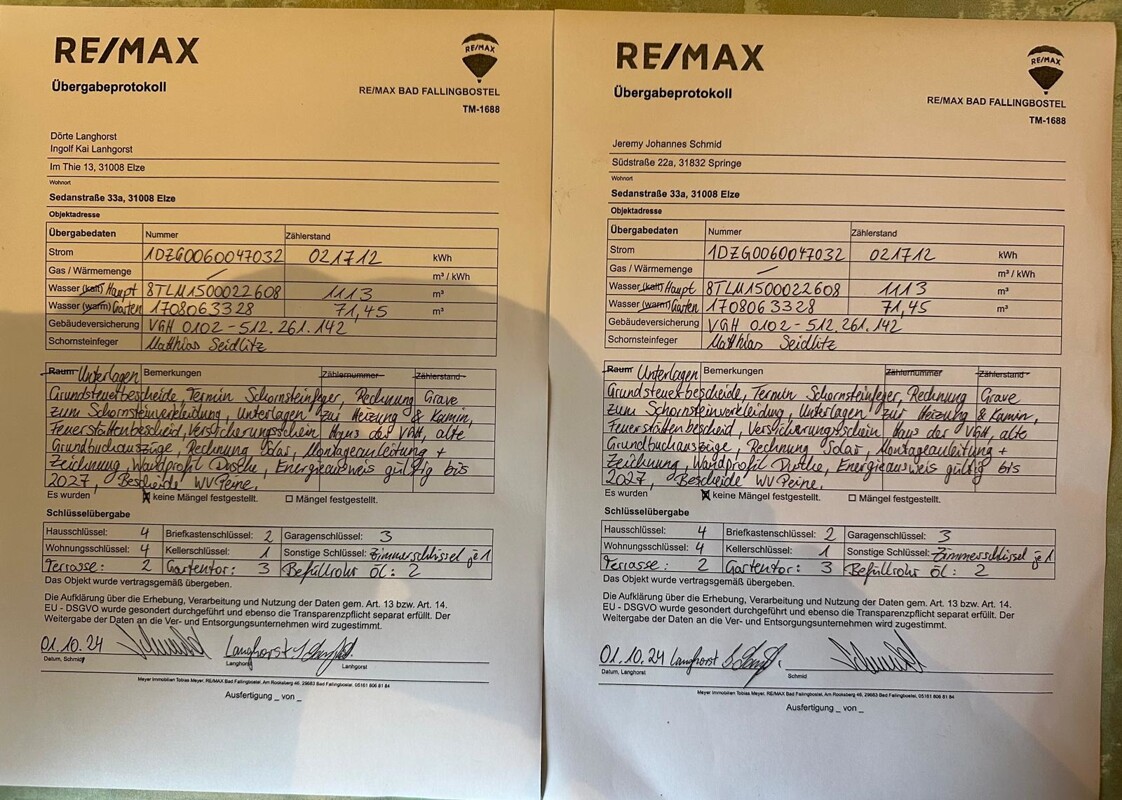 RE/MAX
RE/MAX
Übergabeprotokoll
RE/MAX BAD FALLINGBOSTEL
TM-1688
Dörte Langhorst
Ingolf Kai Lanhgorst
Im Thie 13, 31008 Elze
Wohnort
Sedanstraße 33a, 31008 Elze
Objektadresse
Übergabedaten Nummer Zählerstand
Strom 1DZG0060047032 021712 kWh
Gas / Wärmemenge — m³ / kWh
Wasser (kalt) Haupt 8TLM1500022608 1113 m³
Wasser (warm) Garten 1708063328 71,45 m³
Gebäudeversicherung VGH 0102-512.261.142
Schornsteinfeger Matthias Seidlitz
Raum Unterlagen Bemerkungen Zählernummer Zählerstand
Grundsteuerbescheide, Termin Schornsteinfeger, Rechnung Grave
zum Schornsteinverkleidung, Unterlagen zur Heizung & Kamin,
Feuerstättenbescheid, Versicherungsschein Haus der VGH, alte
Grundbuchauszüge, Rechnung Solar, Montageanleitung +
Zeichnung, Wandprofil Dusche, Energieausweis gültig bis
2027, Bescheide WV Peine.
Es wurden ☒ keine Mängel festgestellt. ☐ Mängel festgestellt.
Schlüsselübergabe
Hausschlüssel: 4 Briefkastenschlüssel: 2 Garagenschlüssel: 3
Wohnungsschlüssel: 4 Kellerschlüssel: 1 Sonstige Schlüssel: Zimmerschlüssel je 1
Terrasse: 2 Gartentor: 3 Befüllrohr Öl: 2
Das Objekt wurde vertragsgemäß übergeben.
Die Aufklärung über die Erhebung, Verarbeitung und Nutzung der Daten gem. Art. 13 bzw. Art. 14.
EU - DSGVO wurde gesondert durchgeführt und ebenso die Transparenzpflicht separat erfüllt. Der
Weitergabe der Daten an die Ver- und Entsorgungsunternehmen wird zugestimmt.
01.10.24 Schmid Langhorst
Datum, Schmid Langhorst Lanhgorst
Meyer Immobilien Tobias Meyer, RE/MAX Bad Fallingbostel, Am Rooksberg 46, 29683 Bad Fallingbostel, 05161 806 81 84
Ausfertigung _ von _
RE/MAX
RE/MAX
Übergabeprotokoll
RE/MAX BAD FALLINGBOSTEL
TM-1688
Jeremy Johannes Schmid
Südstraße 22a, 31832 Springe
Wohnort
Sedanstraße 33a, 31008 Elze
Objektadresse
Übergabedaten Nummer Zählerstand
Strom 1DZG0060047032 021712 kWh
Gas / Wärmemenge — m³ / kWh
Wasser (kalt) Haupt 8TLM1500022608 1113 m³
Wasser (warm) Garten 1708063328 71,45 m³
Gebäudeversicherung VGH 0102-512.261.142
Schornsteinfeger Matthias Seidlitz
Raum Unterlagen Bemerkungen Zählernummer Zählerstand
Grundsteuerbescheide, Termin Schornsteinfeger, Rechnung Grave
zum Schornsteinverkleidung, Unterlagen zur Heizung & Kamin,
Feuerstättenbescheid, Versicherungsschein Haus der VGH, alte
Grundbuchauszüge, Rechnung Solar, Montageanleitung +
Zeichnung, Wandprofil Dusche, Energieausweis gültig bis
2027, Bescheide WV Peine.
Es wurden ☒ keine Mängel festgestellt. ☐ Mängel festgestellt.
Schlüsselübergabe
Hausschlüssel: 4 Briefkastenschlüssel: 2 Garagenschlüssel: 3
Wohnungsschlüssel: 4 Kellerschlüssel: 1 Sonstige Schlüssel: Zimmerschlüssel je 1
Terrasse: 2 Gartentor: 3 Befüllrohr Öl: 2
Das Objekt wurde vertragsgemäß übergeben.
Die Aufklärung über die Erhebung, Verarbeitung und Nutzung der Daten gem. Art. 13 bzw. Art. 14.
EU - DSGVO wurde gesondert durchgeführt und ebenso die Transparenzpflicht separat erfüllt. Der
Weitergabe der Daten an die Ver- und Entsorgungsunternehmen wird zugestimmt.
01.10.24 Langhorst Schmid
Datum, Langhorst Schmid
Meyer Immobilien Tobias Meyer, RE/MAX Bad Fallingbostel, Am Rooksberg 46, 29683 Bad Fallingbostel, 05161 806 81 84
Ausfertigung _ von _